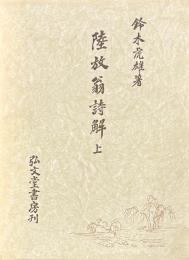 鈴木虎雄著
陸放翁詩解 上
弘文堂書房刊